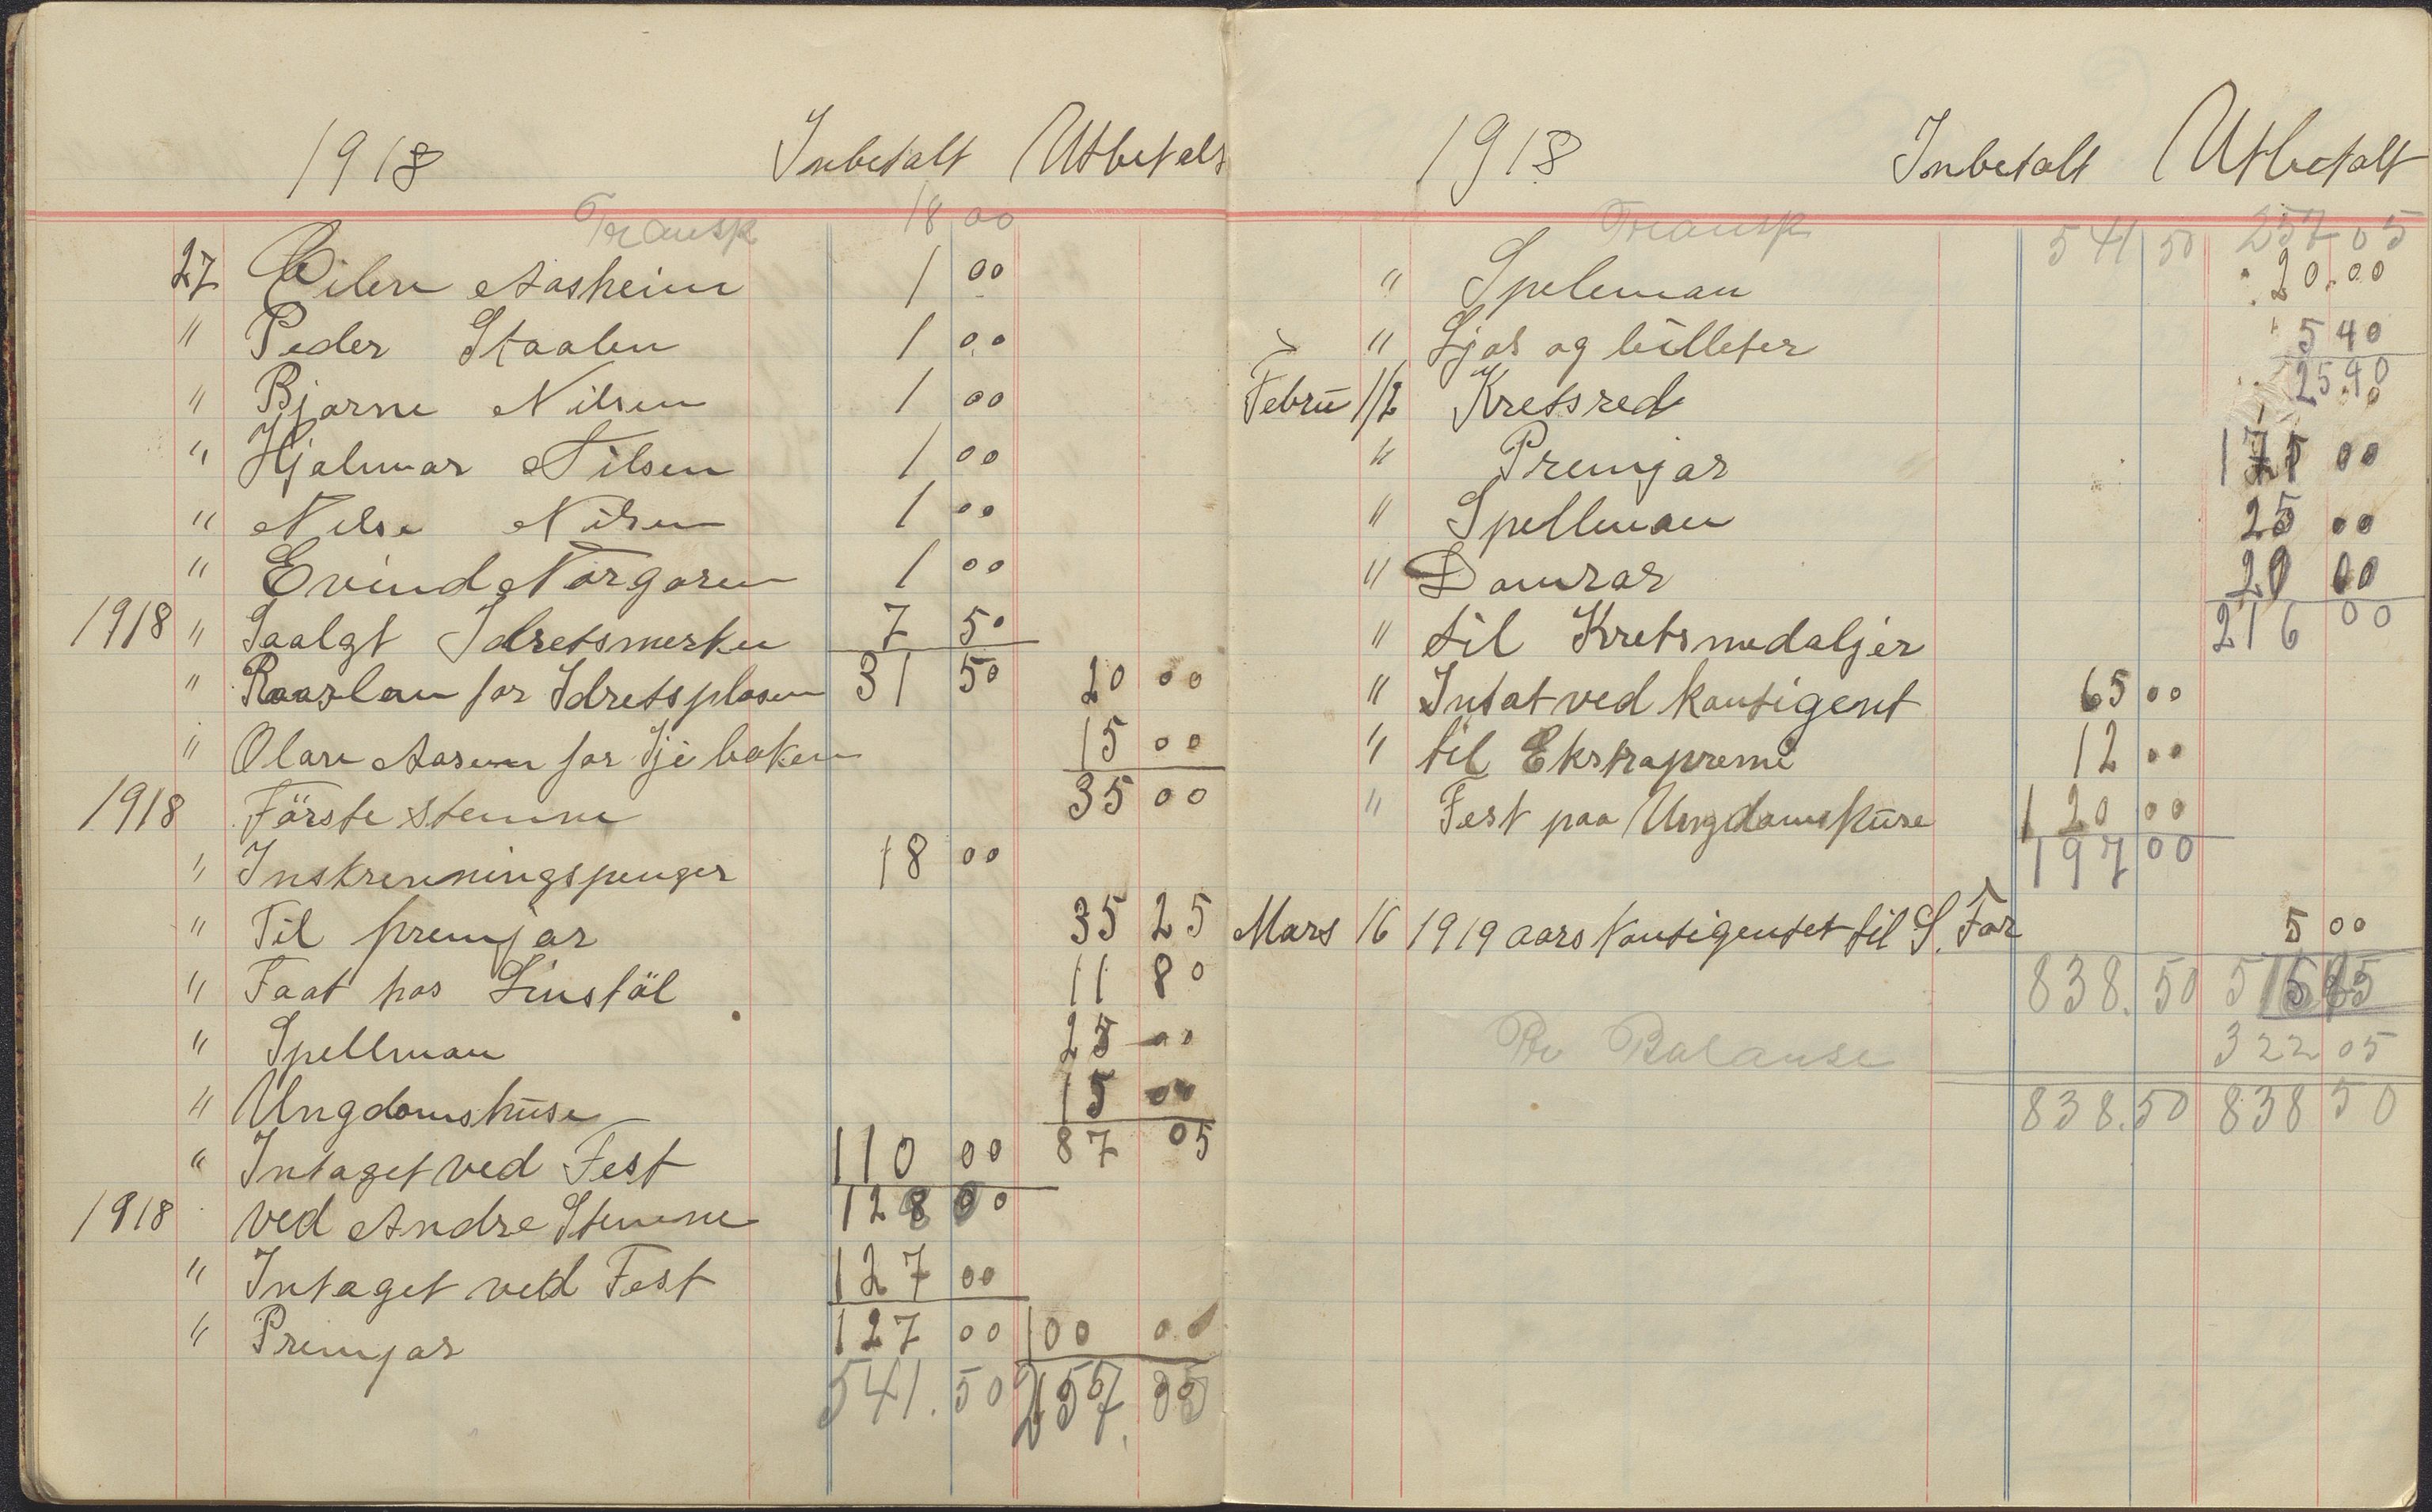 1918 Inbetalt Utbetalt
Transp 18 00
27 Eilen Aasheim 1 00
" Peder Staalen 1 00
" Bjarne Nilsen 1 00
" Hjalmar Nilsen 1 00
" Nilse Nilsen 1 00
" Evind Norgaren 1 00
1918 " Saalgt Idretsmerku 7 50
" for Idretsplasen 31 50 20 00
" Olav Aasen for boken 15 00
1918 Förste stemne 35 00
" Inskrivningspenger 18 00
" Til premjar 35 25
" Faat hos 11 80
" Spellman 25 00
" Ungdomshuse 15 00
" Intaget ved Fest 110 00 87 05
1918 ved Andre Stemne 128 00
" Intaget ved Fest 127 00
" Premjar 127 00 100 00
541.50 257.05
1918 Inbetalt Utbetalt
Transp 541 50 257 05
" Speleman 20.00
" Ljos og billeter 5 40
Febru 1/2 Kretsred 25.40
" Premjar 171 00
" Spellman 25 00
" Domrar 20 00
" til Kretsmedaljer 216 00
" Intat ved kontigent 65 00
" til Ekstrapremi 12 00
" Fest paa Ungdomshuse 120 00
197 00
Mars 16 1919 aars Kontigentet til S. For 5 00
838.50 516 45
Pr Balanse 322 05
838.50 838 50